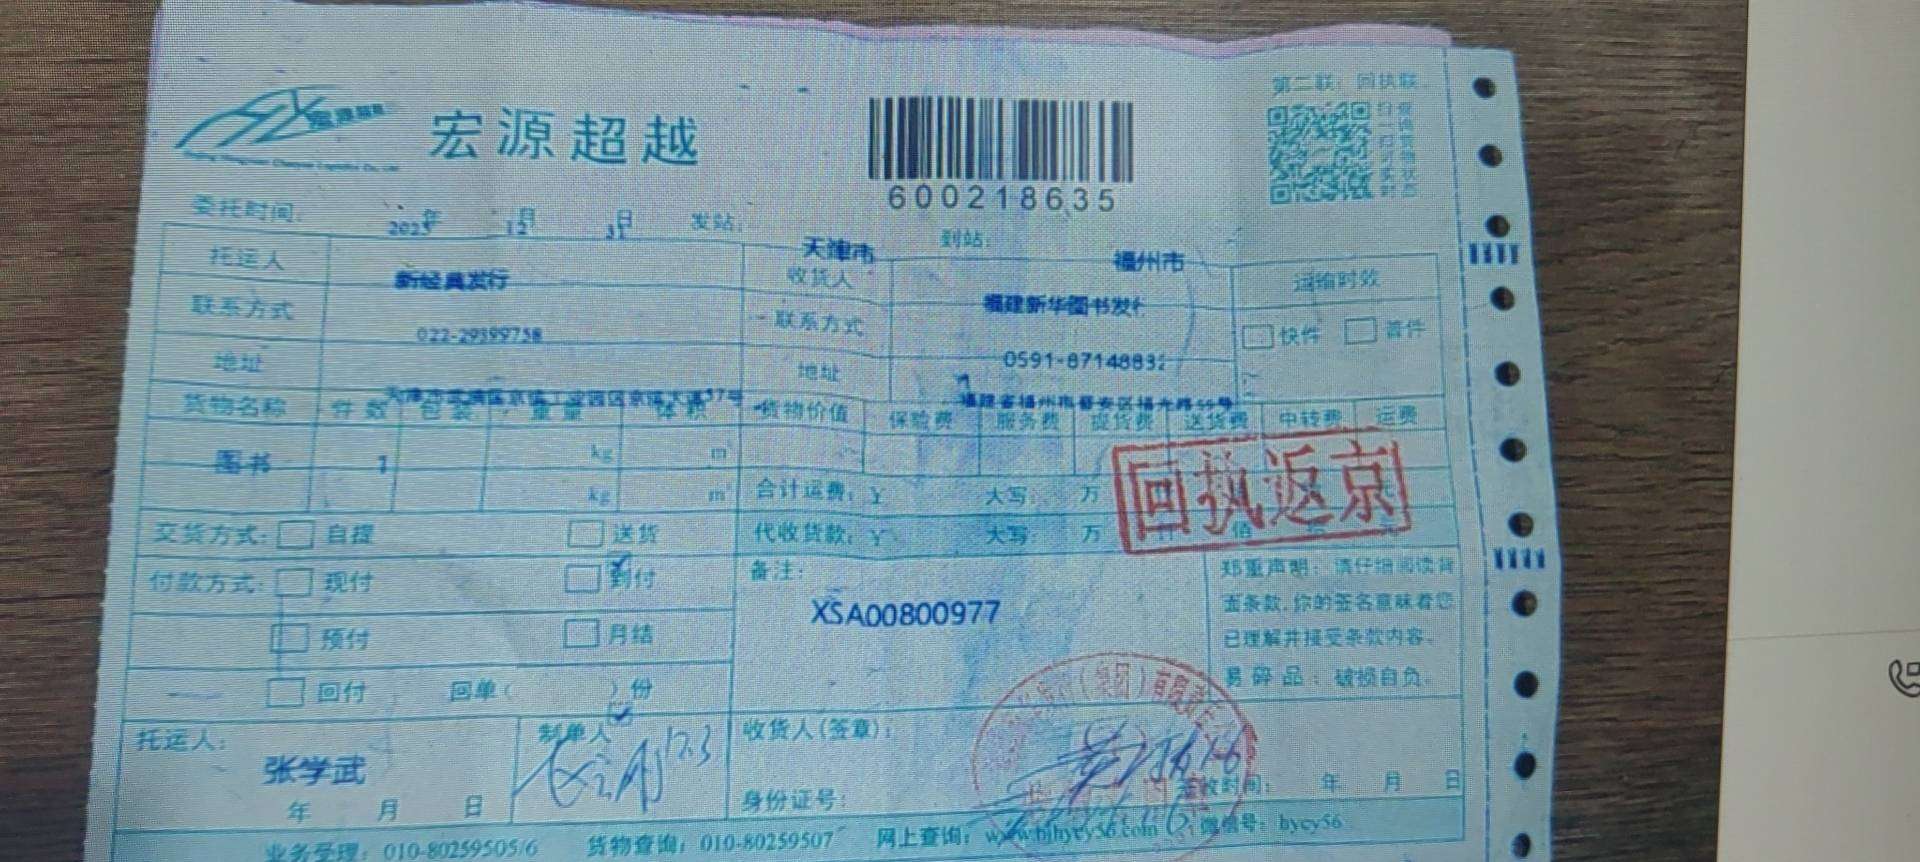 第二联：回执联
宏源超越
600218635
委托时间： 2023年 12月 3日 发站： 天津市 到站： 福州市
托运人 新经典发行 收货人 福建新华图书发行 运输时效
联系方式 022-29399758 联系方式 0591-87148832 快件 普件
地址 天津市武清区京滨工业园区京滨大道37号 地址
货物名称 件数 包装 重量 体积 货物价值 保险费 服务费 提货费 送货费 中转费 运费
图书 1 kg m³
kg m³ 合计运费：¥ 大写： 万
回执返京
交货方式： 自提 送货 代收货款：¥ 大写： 万 仟 佰
付款方式： 现付 到付 备注：
预付 月结
回付 回单（ ）份
XSA00800977
郑重声明：请仔细阅读背
面条款，你的签名意味着您
已理解并接受条款内容。
易碎品：破损自负。
托运人： 张学武 制单人 12.3 收货人(签章)：
年 月 日 身份证号： 签收时间： 年 月 日
业务受理：010-80259505/6 货物查询：010-80259507 网上查询：www.bjhycy56.com 微信号：hycy56